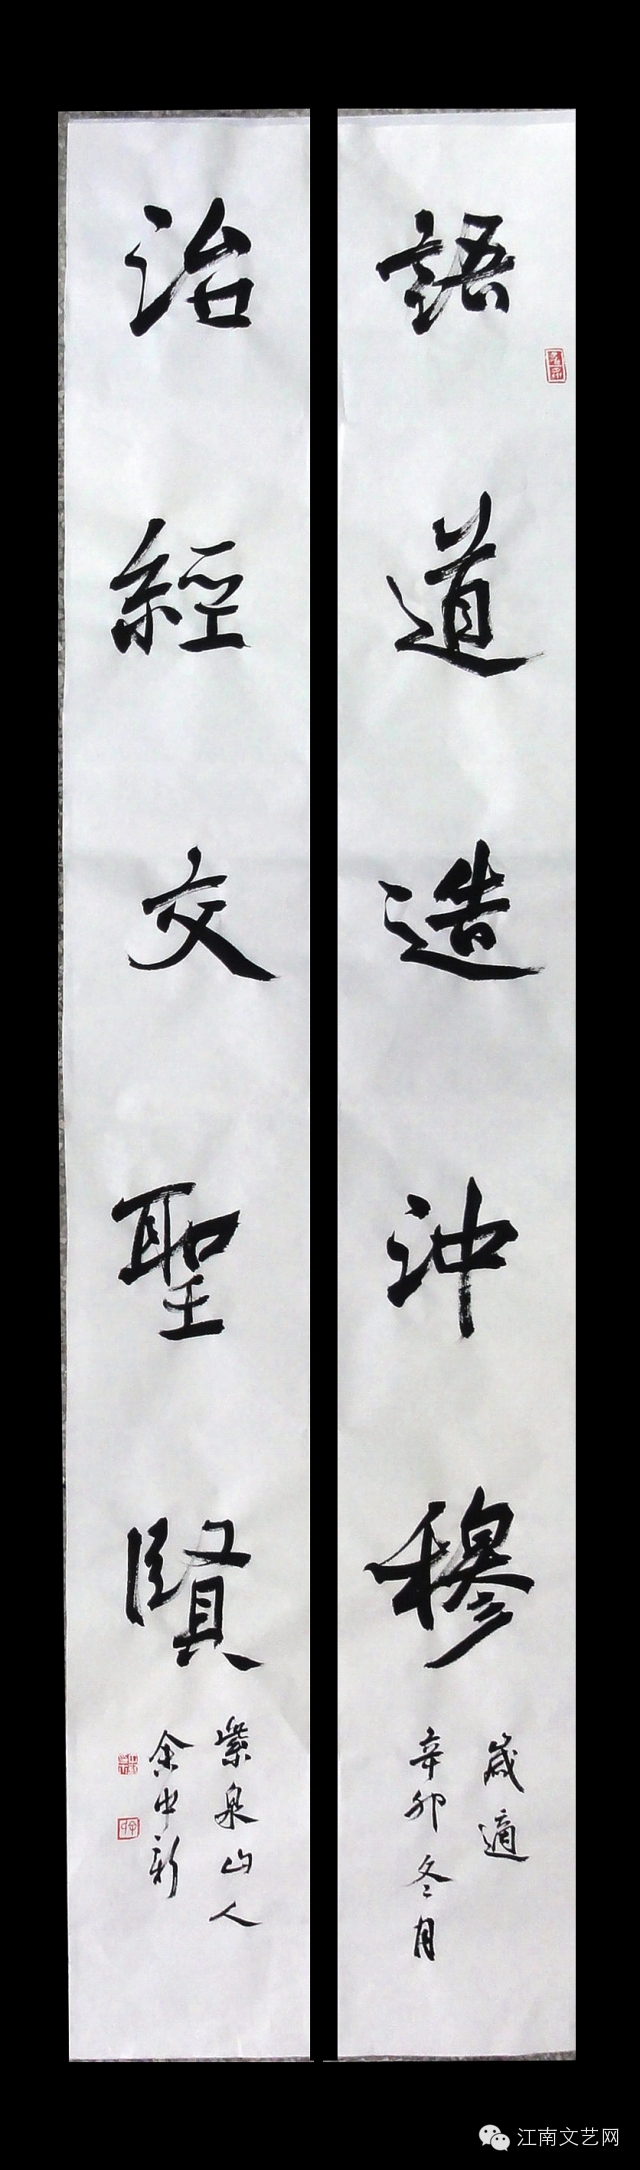 語道造沖穆
歲適
辛卯冬月
治經交聖賢
紫泉山人
余中新
江南文艺网